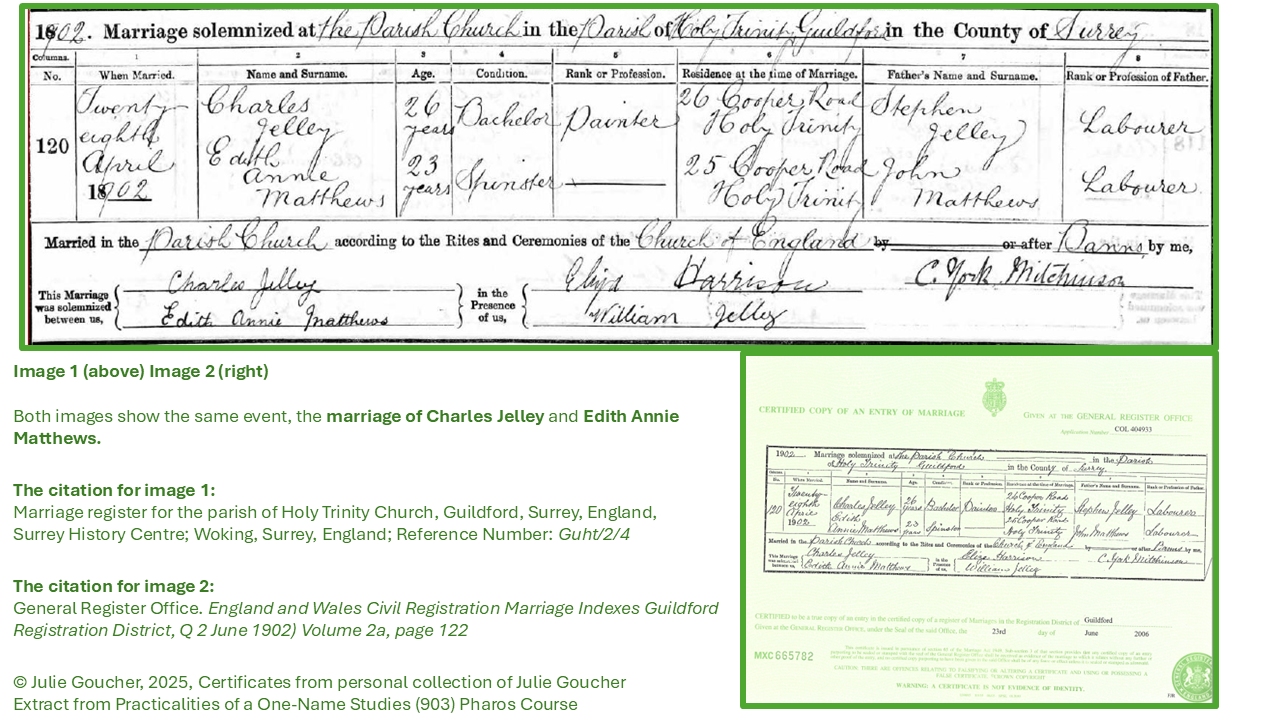 1902. Marriage solemnized at the Parish Church in the Parish of Holy Trinity Guildford in the County of Surrey
Columns. 1 2 3 4 5 6 7 8
No. When Married. Name and Surname. Age. Condition. Rank or Profession. Residence at the time of Marriage. Father's Name and Surname. Rank or Profession of Father.
120 Twenty eighth April 1902 Charles Jelley 26 years Bachelor Painter 26 Cooper Road Holy Trinity Stephen Jelley Labourer
Edith Annie Matthews 23 years Spinster 25 Cooper Road Holy Trinity John Matthews Labourer
Married in the Parish Church according to the Rites and Ceremonies of the Church of England by or after Banns by me,
C. York Mitchinson
This Marriage was solemnized between us, Charles Jelley Edith Annie Matthews in the Presence of us, Eliza Harrison William Jelley
Image 1 (above) Image 2 (right)
Both images show the same event, the marriage of Charles Jelley and Edith Annie
Matthews.
The citation for image 1:
Marriage register for the parish of Holy Trinity Church, Guildford, Surrey, England,
Surrey History Centre: Woking, Surrey, England; Reference Number: Guht/2/4
The citation for image 2:
General Register Office. England and Wales Civil Registration Marriage Indexes Guildford
Registration District, Q 2 June 1902) Volume 2a, page 122
© Julie Goucher, 2025, Certificate from personal collection of Julie Goucher
Extract from Practicalities of a One-Name Studies (903) Pharos Course
CERTIFIED COPY OF AN ENTRY OF MARRIAGE
GIVEN AT THE GENERAL REGISTER OFFICE
Application Number COL 404933
1902 Marriage solemnized at the Parish Church in the Parish
of Holy Trinity Guildford in the County of Surrey
No. When Married. Name and Surname. Age. Condition. Rank or Profession. Residence at the time of Marriage. Father's Name and Surname. Rank or Profession of Father.
120 Twenty-eighth April 1902 Charles Jelley 26 years Bachelor Painter 26 Cooper Road Holy Trinity Stephen Jelley Labourer
Edith Annie Matthews 23 years Spinster 25 Cooper Road Holy Trinity John Matthews Labourer
Married in the Parish Church according to the Rites and Ceremonies of the Church of England by or after Banns by me,
This Marriage was solemnized between us, Charles Jelley Edith Annie Matthews in the Presence of us, Eliza Harrison William Jelley C. York Mitchinson
CERTIFIED to be a true copy of an entry in the certified copy of a register of Marriages in the Registration District of Guildford
Given at the GENERAL REGISTER OFFICE, under the Seal of the said Office, the 23rd day of June 2006
MXC 665782
CAUTION: THERE ARE OFFENCES RELATING TO FALSIFYING OR ALTERING A CERTIFICATE AND USING OR POSSESSING A
FALSE CERTIFICATE. ©CROWN COPYRIGHT
WARNING: A CERTIFICATE IS NOT EVIDENCE OF IDENTITY.